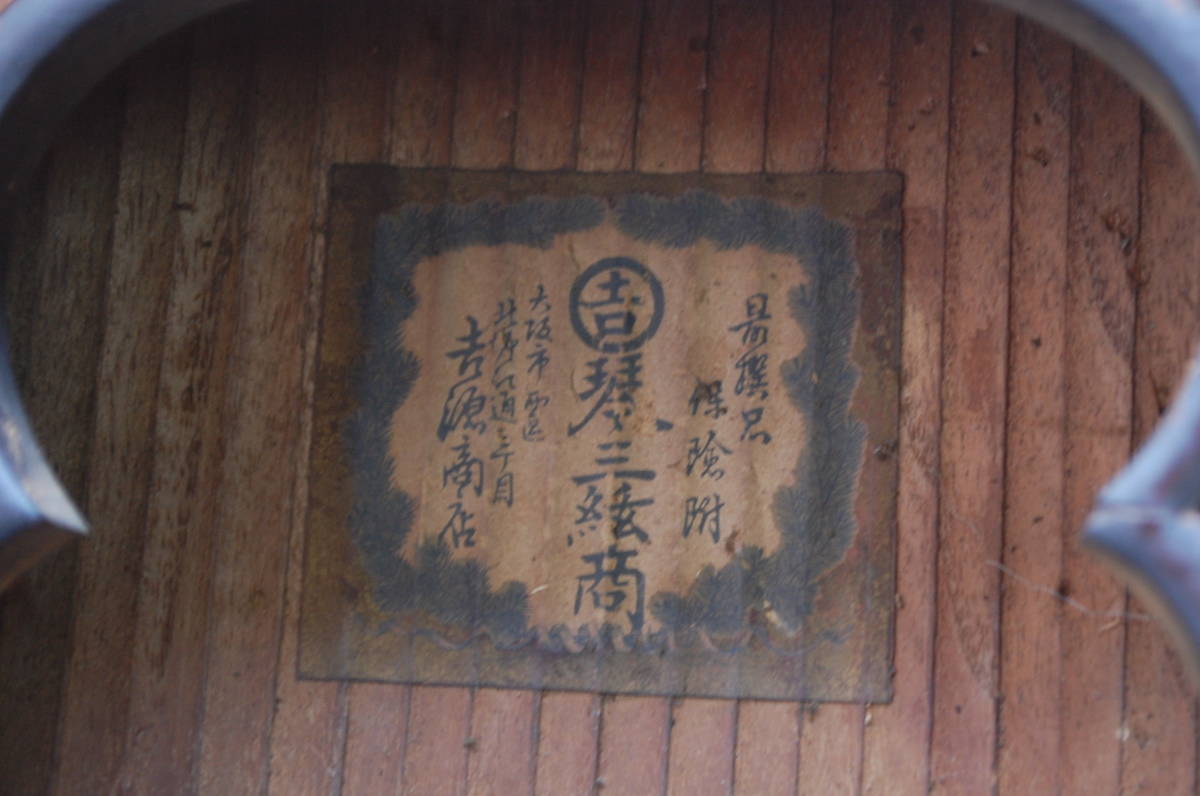 最撰品
保險附
吉
琴三絃商
大阪市西区
北堀江通二丁目
吉源商店